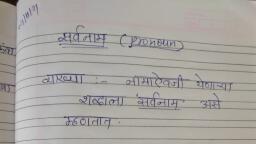 सर्वनाम (pronoun)
व्याख्या :- नामाऐवजी येणाऱ्या
शब्दाला 'सर्वनाम' असे
म्हणतात.